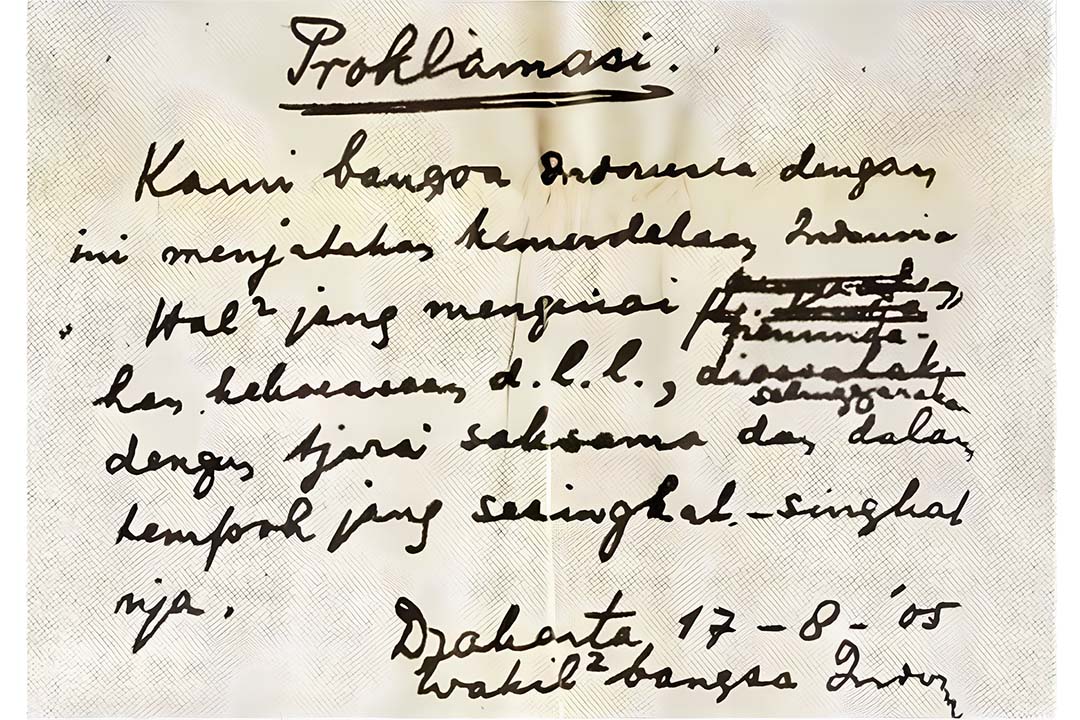 Proklamasi.
Kami bangsa Indonesia dengan
ini menjatakan kemerdekaan Indonesia
Hal² jang mengenai peminda-
han kekoeasaan d.l.l., diselenggarakan
dengan tjara saksama dan dalam
tempoh jang sesingkat-singkat
nja.
Djakarta 17 - 8 - '05
Wakil² bangsa Indon